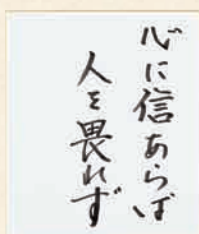 心に信あらば
人を畏れず